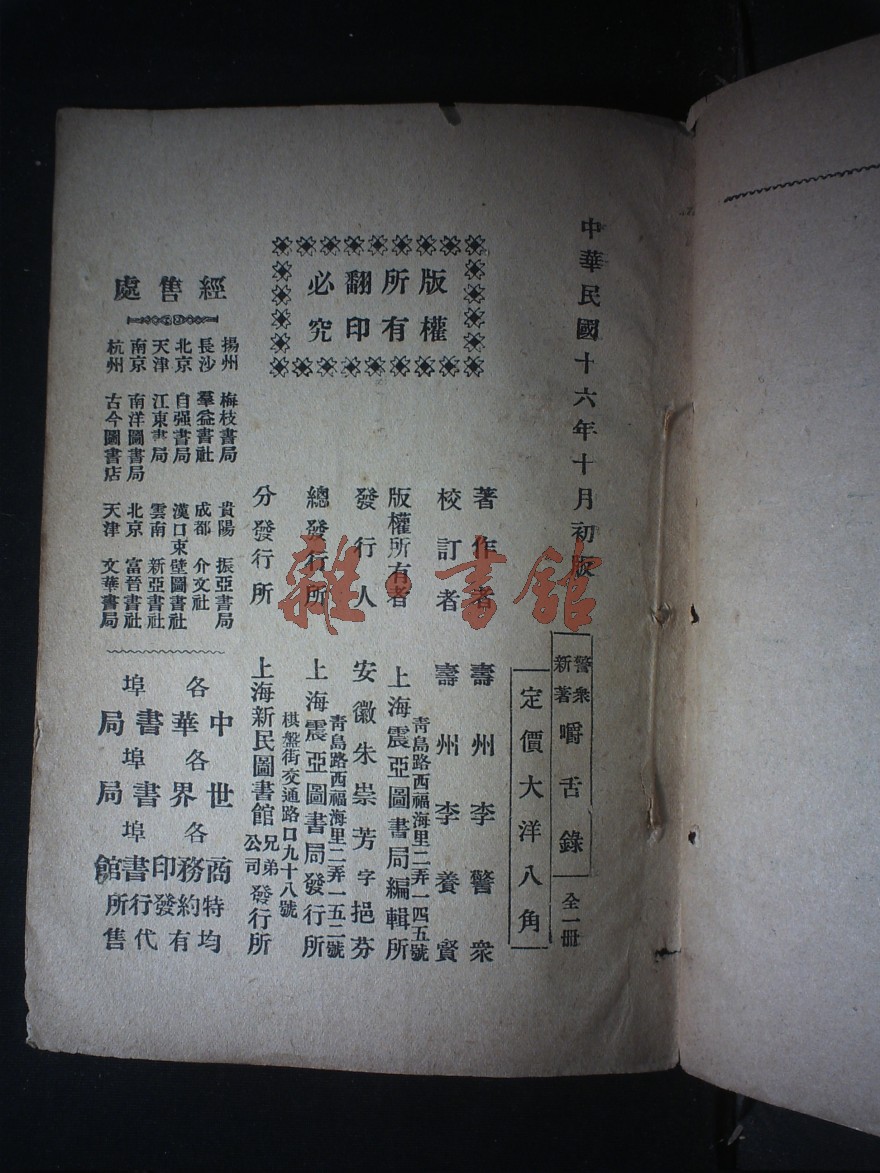 中華民國十六年十月初版
警衆新著 嚼舌錄 全一冊
定價大洋八角
版權所有
翻印必究
著作者 壽州李警衆
校訂者 壽州李養賢
版權所有者 上海震亞圖書局編輯所
青島路西福海里二弄一四五號
發行人 安徽朱崇芳字挹芬
青島路西福海里二弄一五二號
總發行所 上海震亞圖書局發行所
棋盤街交通路口九十八號
分發行所 上海新民圖書館兄弟公司發行所
經售處
揚州 梅枝書局
長沙 羣益書社
北京 自强書局
天津 江東書局
南京 南洋圖書局
杭州 古今圖書店
貴陽 振亞書局
成都 介文社
漢口東壁圖書社
雲南 新亞書社
北京 富晉書社
天津 文華書局
各埠中華書局
各埠世界書局
各埠商務印書館
均有特約代售發行所
雜·書館